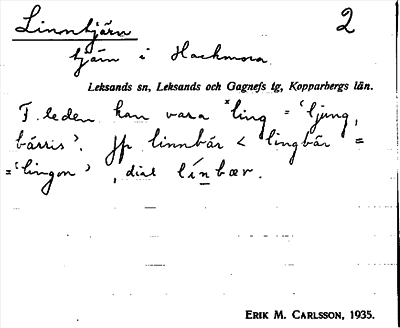 Linntjärn 2
tjärn i Hackmora
Leksands sn, Leksands och Gagnefs tg, Kopparbergs län.
F. leden kan vara *ling = 'ljung,
bärris'. Jfr linnbär < lingbär =
= 'lingon', dial línbær.
ERIK M. CARLSSON, 1935.